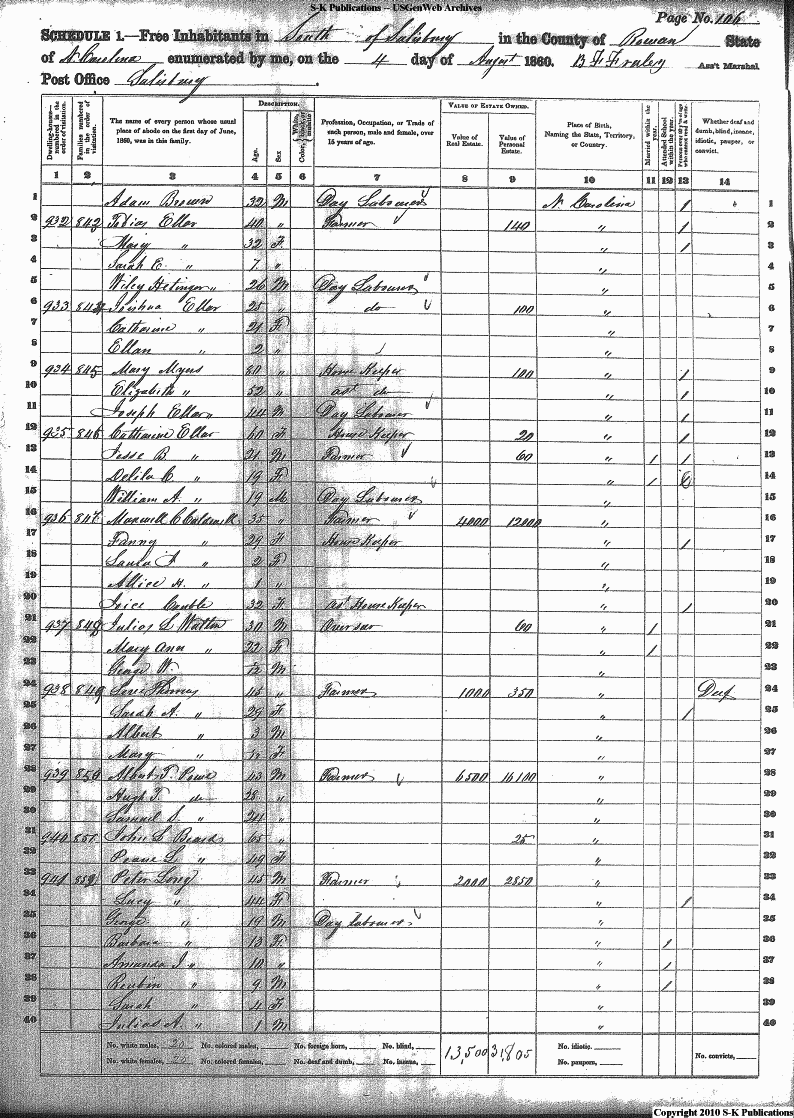 S-K Publications -- USGenWeb Archives
Page No. 106
SCHEDULE 1.—Free Inhabitants in South of Salisbury in the County of Rowan State
of N. Carolina enumerated by me, on the 4 day of August 1860. B F Fraley Ass't Marshal.
Post Office Salisbury
Dwelling-houses—numbered in the order of visitation.
Families numbered in the order of visitation.
The name of every person whose usual place of abode on the first day of June, 1860, was in this family.
DESCRIPTION.
Age.
Sex
Profession, Occupation, or Trade of each person, male and female, over 15 years of age.
VALUE OF ESTATE OWNED.
Value of Real Estate.
Value of Personal Estate.
Place of Birth, Naming the State, Territory, or Country.
Married within the year.
Attended School within the year.
Whether deaf and dumb, blind, insane, idiotic, pauper, or convict.
1 2 3 4 5 6 7 8 9 10 11 12 13 14
1 Adam Brown 32 M Day Labourer N Carolina / 1
2 932 842 Tobias Eller 40 " Farmer 140 " / 2
3 Mary " 32 F " / 3
4 Sarah E. " 7 " " 4
5 Wiley " 26 M Day Labourer " 5
6 933 Joshua Eller 25 " do 100 " 6
7 Catharine " 21 F " 7
8 Ellan " 2 " " 8
9 934 845 Mary Myers 80 " House Keeper 100 " / 9
10 Elizabeth " 52 " ast do " / 10
11 Joseph Eller " 44 M Day Labourer " / 11
12 935 846 Catharine Eller 60 F House Keeper 20 " / 12
13 Jesse B " 21 M Farmer 60 " / / 13
14 Delila C " 19 F " / 14
15 William A. " 19 M Day Labourer " 15
16 936 847 Maxwell C Caldwell 35 " Farmer 4000 12000 " 16
17 Fanny " 29 F House Keeper " / 17
18 " 2 F " 18
19 Allice H. " 1 " " 19
20 Couble 32 F ast House Keeper " / 20
21 937 848 Julios L Walton 30 M Overseer 60 " / 21
22 Mary Ann " 22 F " / 22
23 George W. M " 23
24 938 849 Thomas 45 " Farmer 1000 350 " Deef 24
25 Sarah A. " 29 F " / 25
26 Albert " 3 M " 26
27 Mary " F " 27
28 939 850 Albert T. 43 M Farmer 6500 16100 " 28
29 Hugh T. do 28 " " 29
30 Samuel S. " " " 30
31 940 851 John L Beard 65 " 25 " 31
32 L. " 49 F " 32
33 941 852 Peter Long 45 M Farmer 2000 2850 " 33
34 Lucy " 44 F " / 34
35 George " 19 M Day labourer " 35
36 Barbara " 13 F " / 36
37 Amanda J. " 10 " " / 37
38 Reuben " 9 M " / 38
39 Sarah " 4 F " 39
40 Julias A. " 1 M " 40
No. white males, 20 No. colored males, No. foreign born, No. blind, 13,500 31,805 No. idiotic.
No. white females, 20 No. colored females, No. deaf and dumb, No. insane, No. paupers, No. convicts,
Copyright 2010 S-K Publications